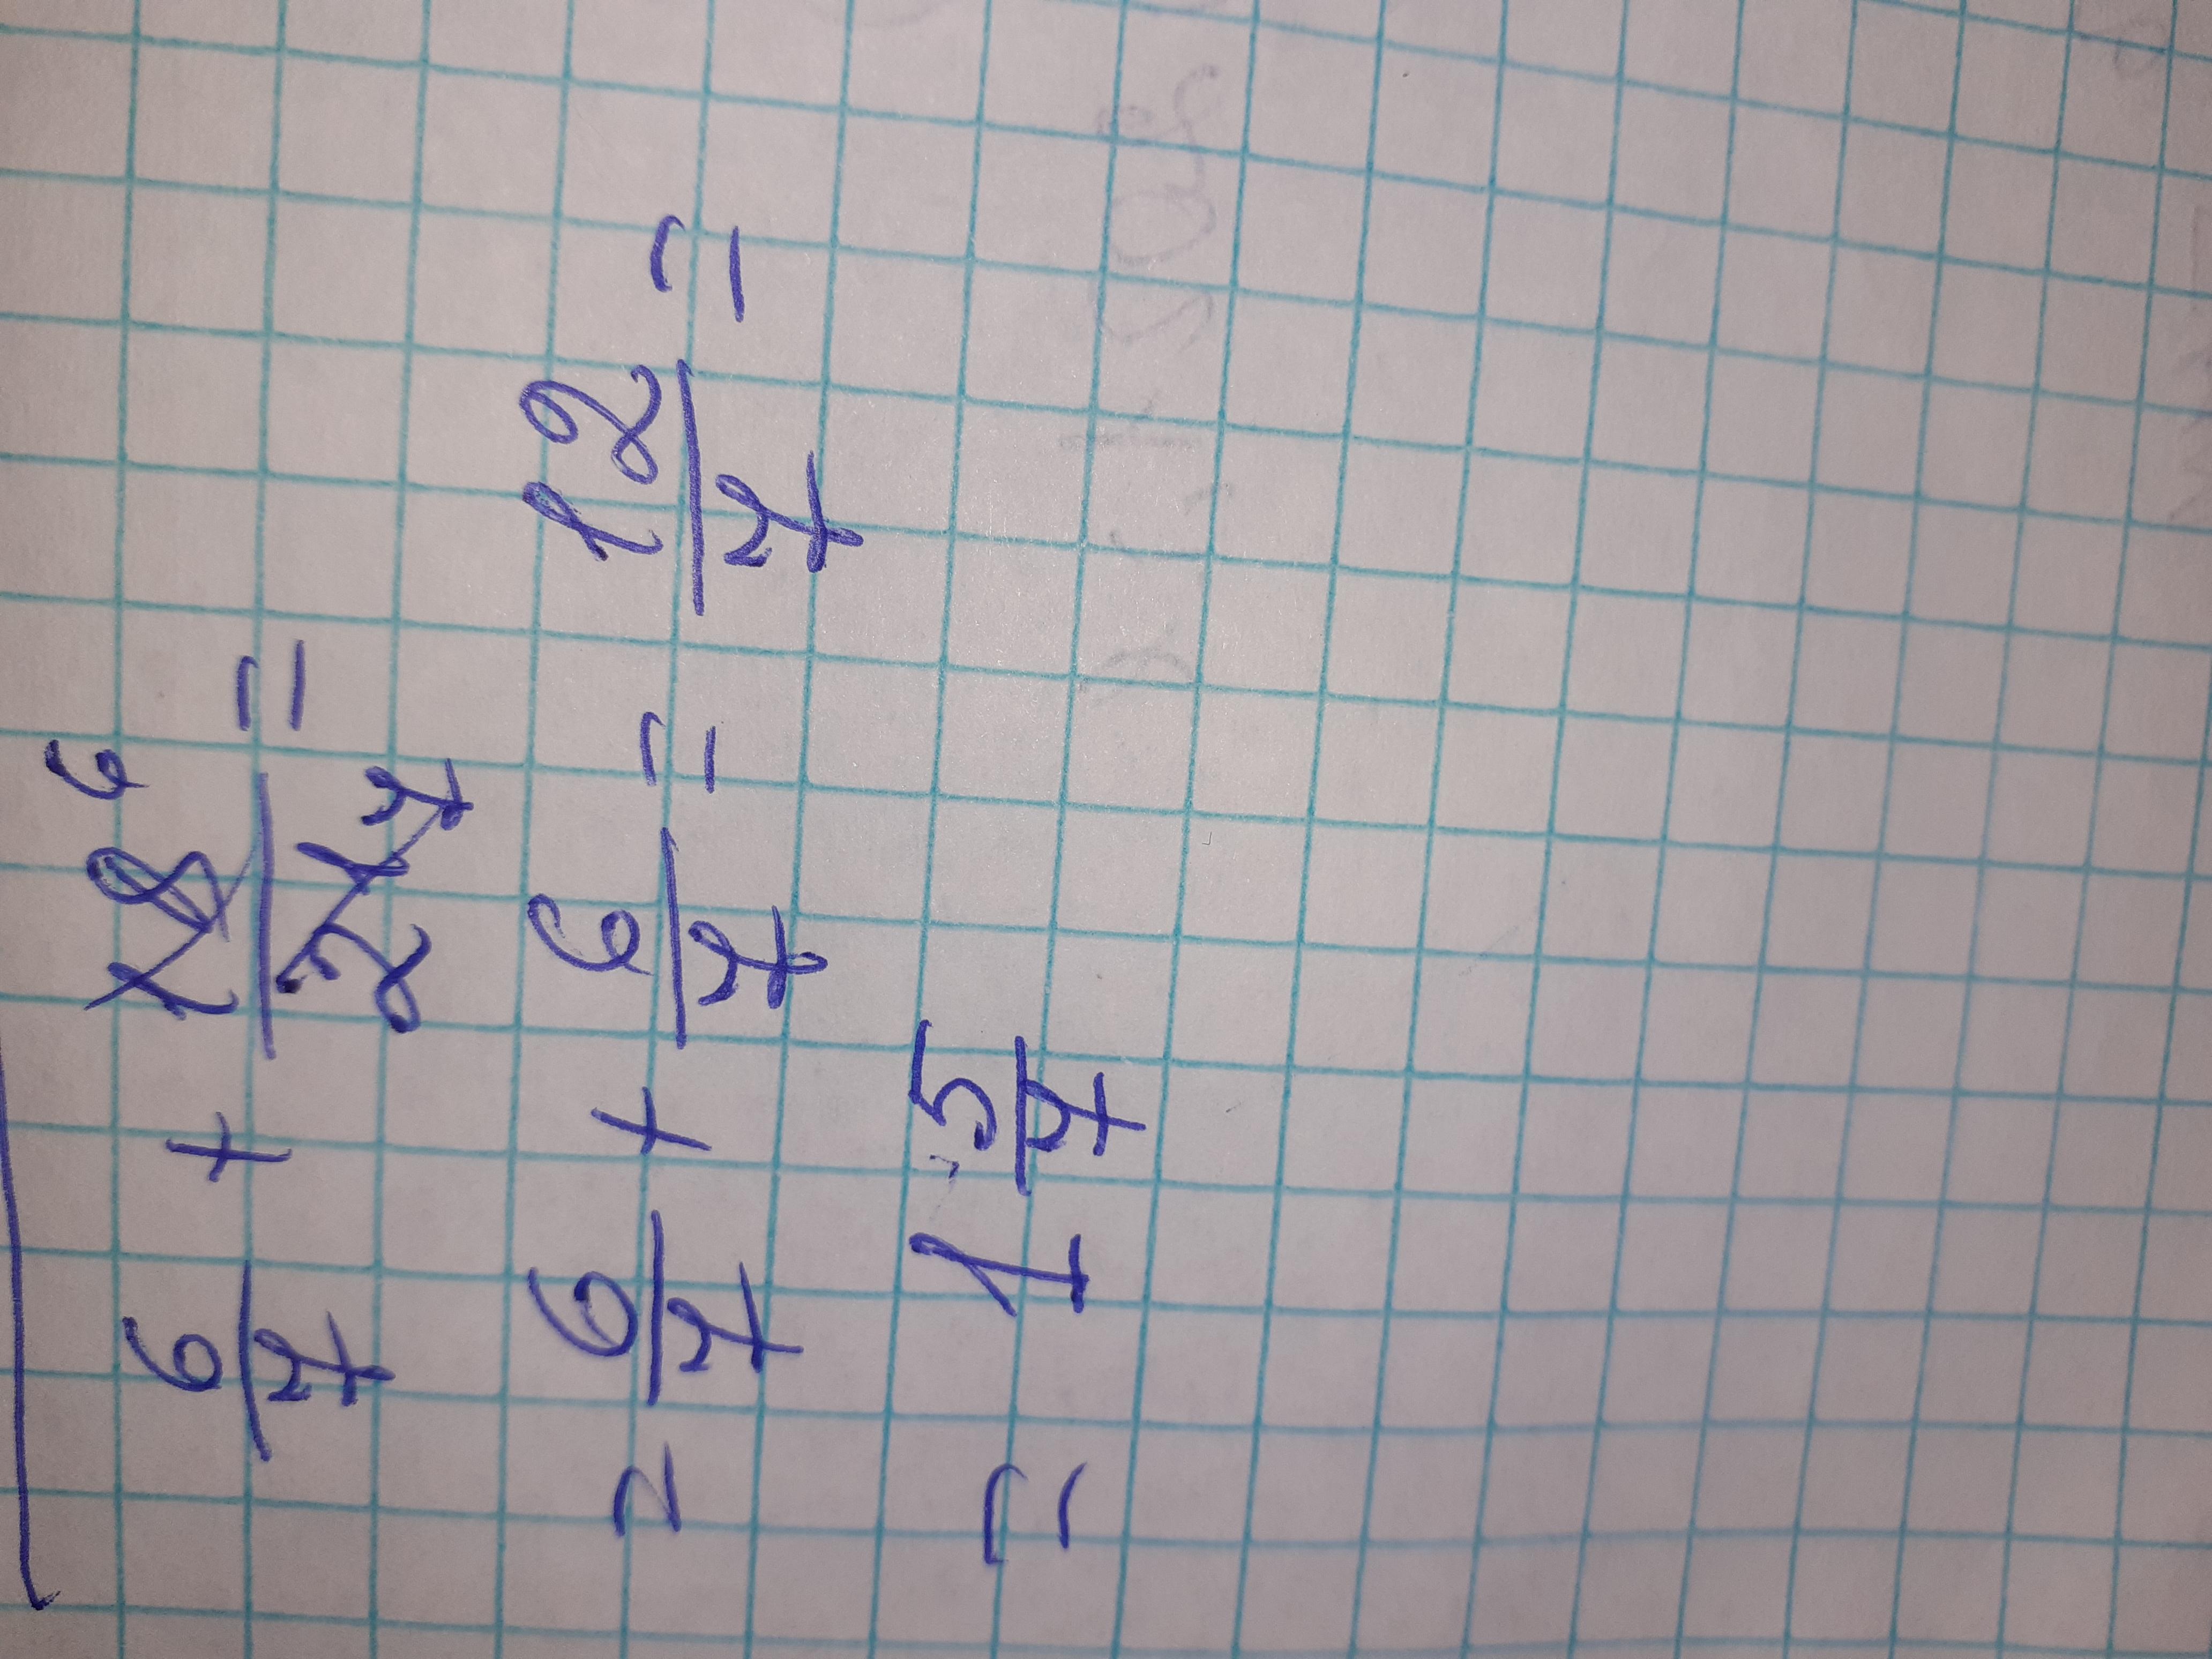 6/7 + 18/21 =
= 6/7 + 6/7 = 12/7 =
= 1 5/7